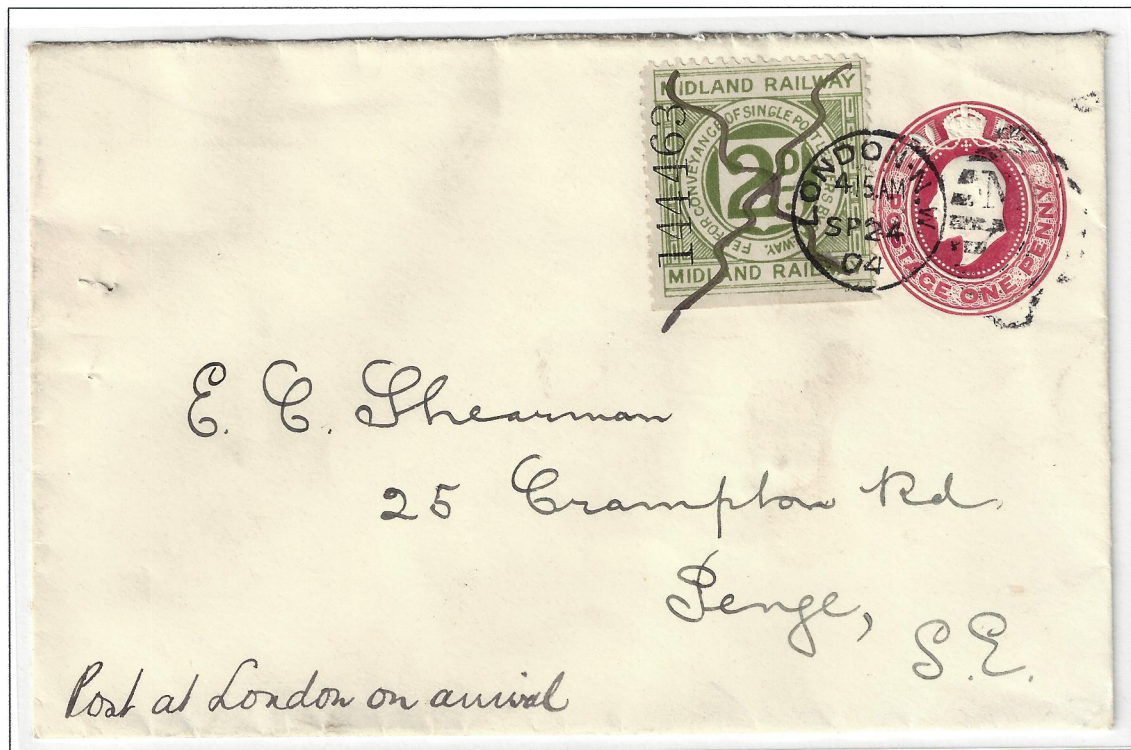 MIDLAND RAILWAY
144463
FEE FOR CONVEYANCE OF SINGLE POST LETTERS BY RAILWAY.
2D
MIDLAND RAILWAY
LONDON. N.W.
4.15AM
SP 24
04
POSTAGE ONE PENNY
E. C. Shearman
25 Crampton Rd.
Penge,
S.E.
Post at London on arrival